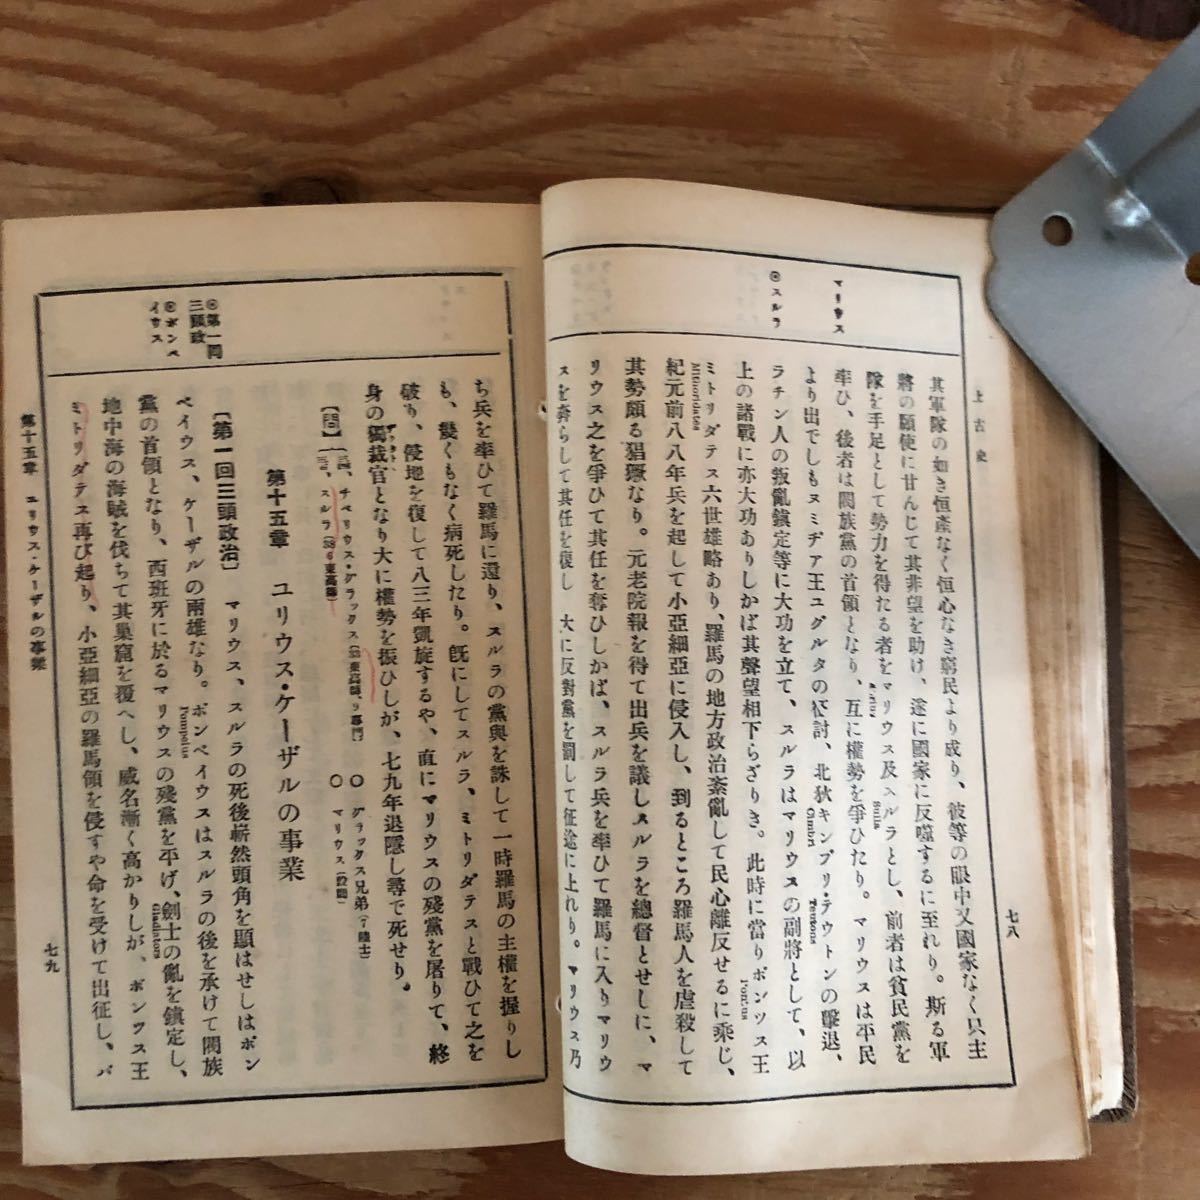 上古史
七八
マリウス
◎スルラ
其軍隊の如き恒産なく恒心なき窮民より成り、彼等の眼中又國家なく只主
將の願使に甘んじて其非望を助け、遂に國家に反噬するに至れり。斯る軍
隊を手足として勢力を得たる者をマリウス及スルラとし、前者は貧民黨を
率ひ、後者は閥族黨の首領となり、互に權勢を爭ひたり。マリウスは平民
より出でしもヌミヂア王ユグルタの征討、北狄キンブリ・テウトンの擊退、
Cimbri
Teutons
ラチン人の叛亂鎮定等に大功を立て、スルラはマリウスの副將として、以
上の諸戰に亦大功ありしかば其聲望相下らざりき。此時に當りポンツス王
Pontus
ミトリダテス六世雄略あり、羅馬の地方政治紊亂して民心離反せるに乘じ、
Mithridates
紀元前八八年兵を起して小亞細亞に侵入し、到るところ羅馬人を虐殺して
其勢頗る猖獗なり。元老院報を得て出兵を議しスルラを總督とせしに、マ
リウス之を爭ひて其任を奪ひしかば、スルラ兵を率ひて羅馬に入りマリウ
スを奔らして其任を復し、大に反對黨を罰して征途に上れり。マリウス乃
ち兵を率ひて羅馬に還り、スルラの黨與を誅して一時羅馬の主權を握りし
も、幾くもなく病死したり。既にしてスルラ、ミトリダテスと戰ひて之を
破り、侵地を復して八三年凱旋するや、直にマリウスの殘黨を屠りて、終
身の獨裁官となり大に權勢を振ひしが、七九年退隱し尋で死せり。
【問】
チベリウス・グラックス
○ グラックス兄弟
スルラ
○ マリウス
第十五章 ユリウス・ケーザルの事業
◎第一囘三頭政
◎ポンペイウス
〔第一囘三頭政治〕 マリウス、スルラの死後嶄然頭角を顯はせしはポン
ペイウス、ケーザルの兩雄なり。ポンペイウスはスルラの後を承けて閥族
Pompeius
黨の首領となり、西班牙に於るマリウスの殘黨を平げ、劍士の亂を鎮定し、
Gladiators
地中海の海賊を伐ちて其巢窟を覆へし、威名漸く高かりしが、ポンツス王
ミトリダテス再び起り、小亞細亞の羅馬領を侵すや命を受けて出征し、パ
第十五章 ユリウス・ケーザルの事業
七九